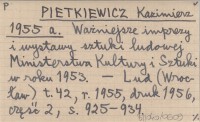 P
PIETKIEWICZ Kazimierz
1955 a. Ważniejsze imprezy
i wystawy sztuki ludowej
Ministerstwa Kultury i Sztuki
w roku 1953. — Lud (Wroc-
ław) t. 42, r. 1955, druk 1956,
część 2, s. 925-934.